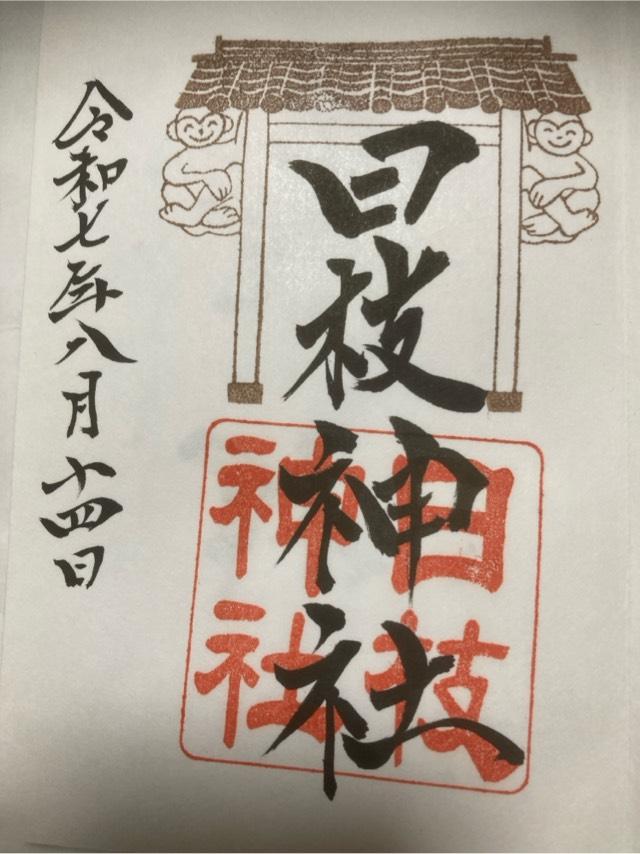 日枝神社
日枝
神社
令和七年八月十四日